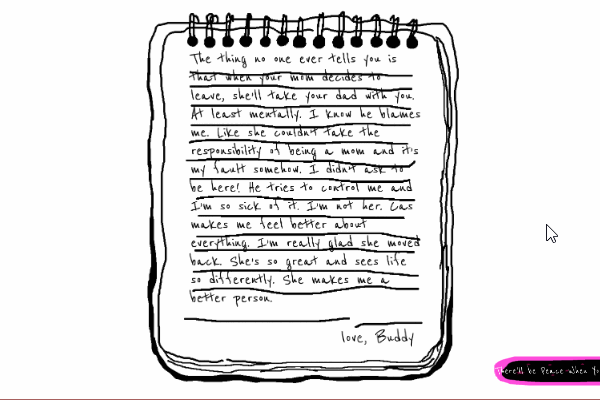 The thing no one ever tells you is
that when your mom decides to
leave, she'll take your dad with you.
At least mentally. I know he blames
me. Like she couldn't take the
responsibility of being a mom and it's
my fault somehow. I didn't ask to
be here! He tries to control me and
I'm so sick of it. I'm not her. Cas
makes me feel better about
everything. I'm really glad she moved
back. She's so great and sees life
so differently. She makes me a
better person.
love, Buddy
There'll be Peace When Yo